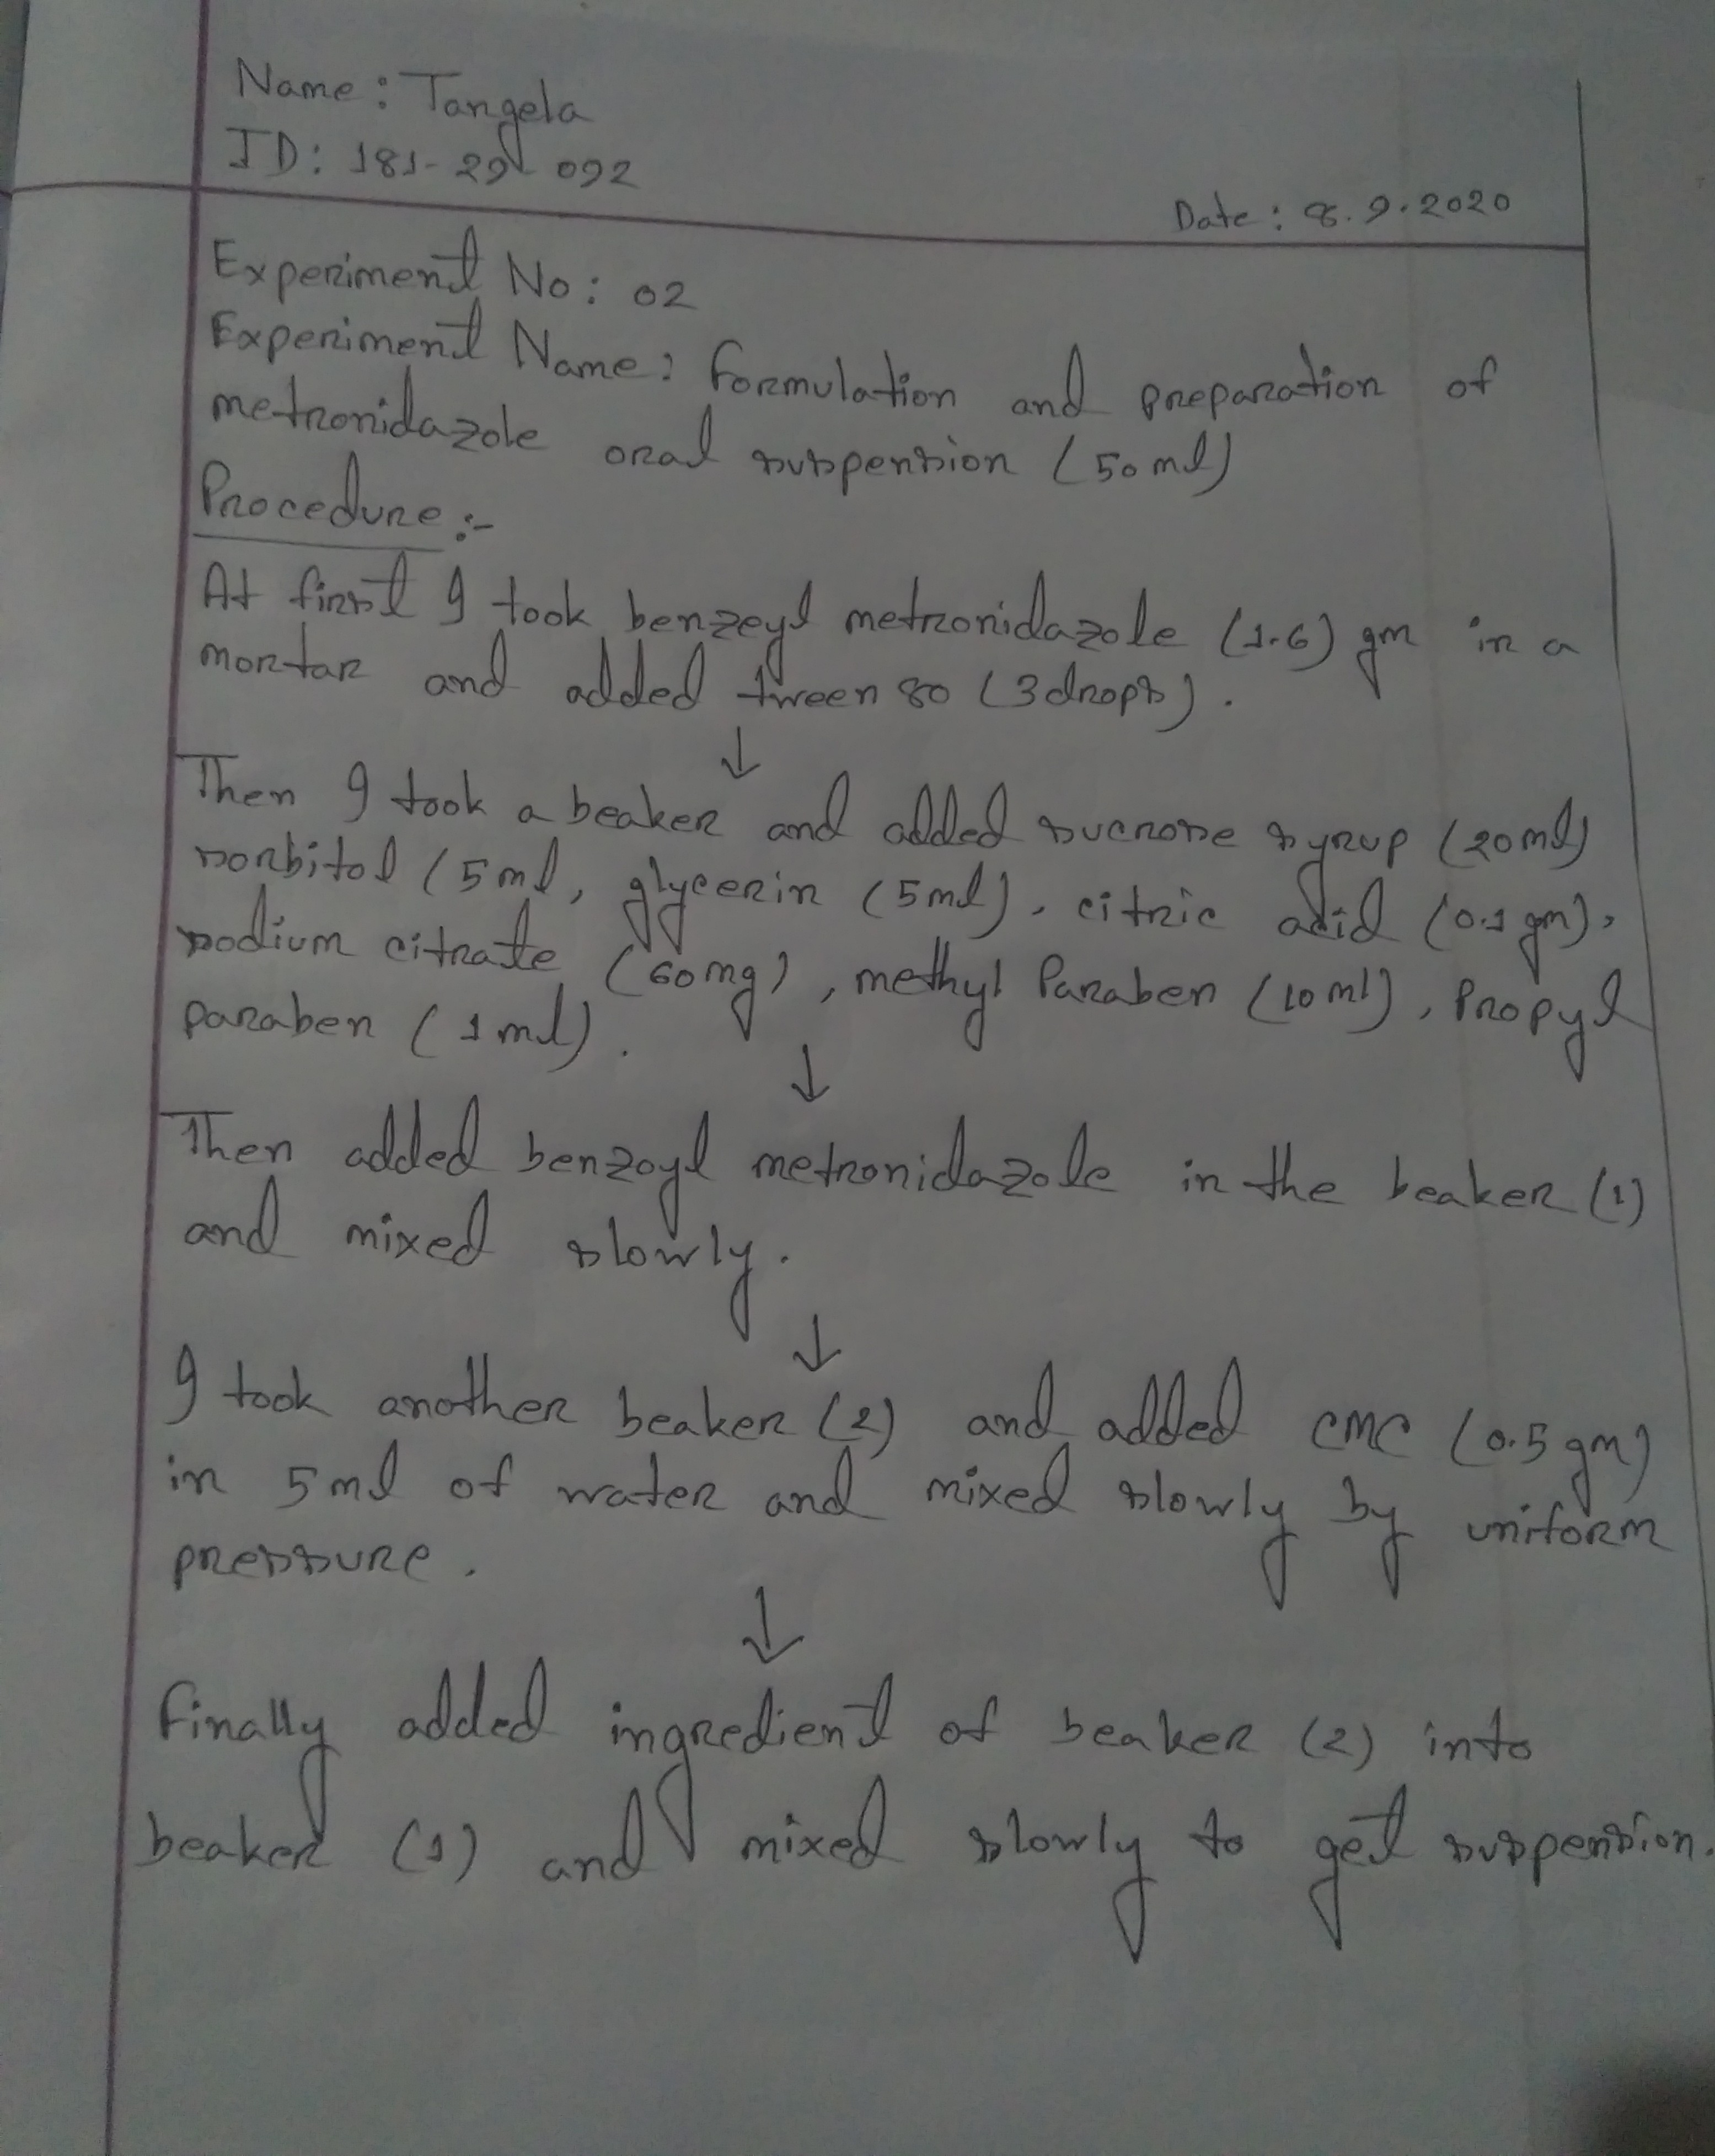 Name: Tangela
ID: 181-29-092
Date: 8.9.2020
Experiment No: 02
Experiment Name: Formulation and preparation of
metronidazole oral suspension (50 ml)
Procedure:-
At first I took benzeyl metronidazole (1.6) gm in a
mortar and added tween 80 (3 drops).
↓
Then I took a beaker and added sucrose syrup (20 ml)
sorbitol (5 ml, glycerin (5 ml), citric acid (0.1 gm),
sodium citrate (60 mg), methyl Paraben (10 ml), Propyl
paraben (1 ml).
↓
Then added benzoyl metronidazole in the beaker (1)
and mixed slowly.
↓
I took another beaker (2) and added CMC (0.5 gm)
in 5 ml of water and mixed slowly by uniform
pressure.
↓
Finally added ingredient of beaker (2) into
beaker (1) and mixed slowly to get suspension.